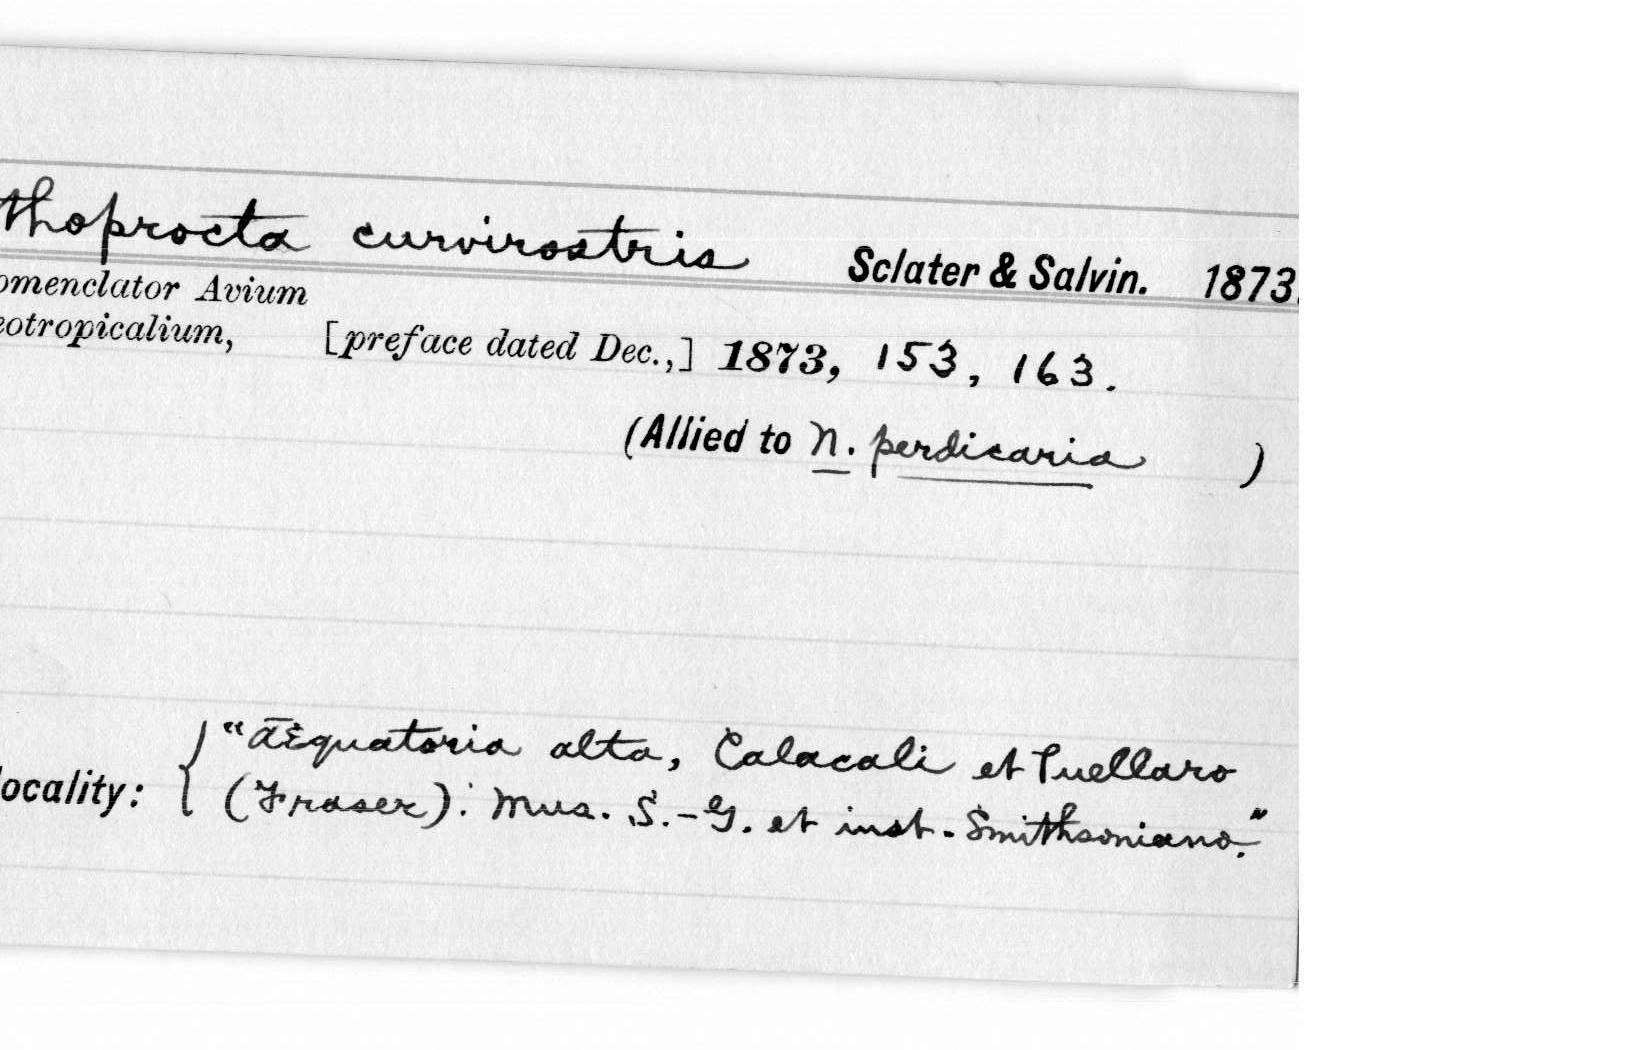 thoprocta curvirostris Sclater & Salvin. 1873.
omenclator Avium
eotropicalium, [preface dated Dec.,] 1873, 153, 163.
(Allied to N. perdicaria )
"Æquatoria alta, Calacali et Puellaro
locality: { (Fraser): Mus. S.-G. et inst. Smithsoniano."